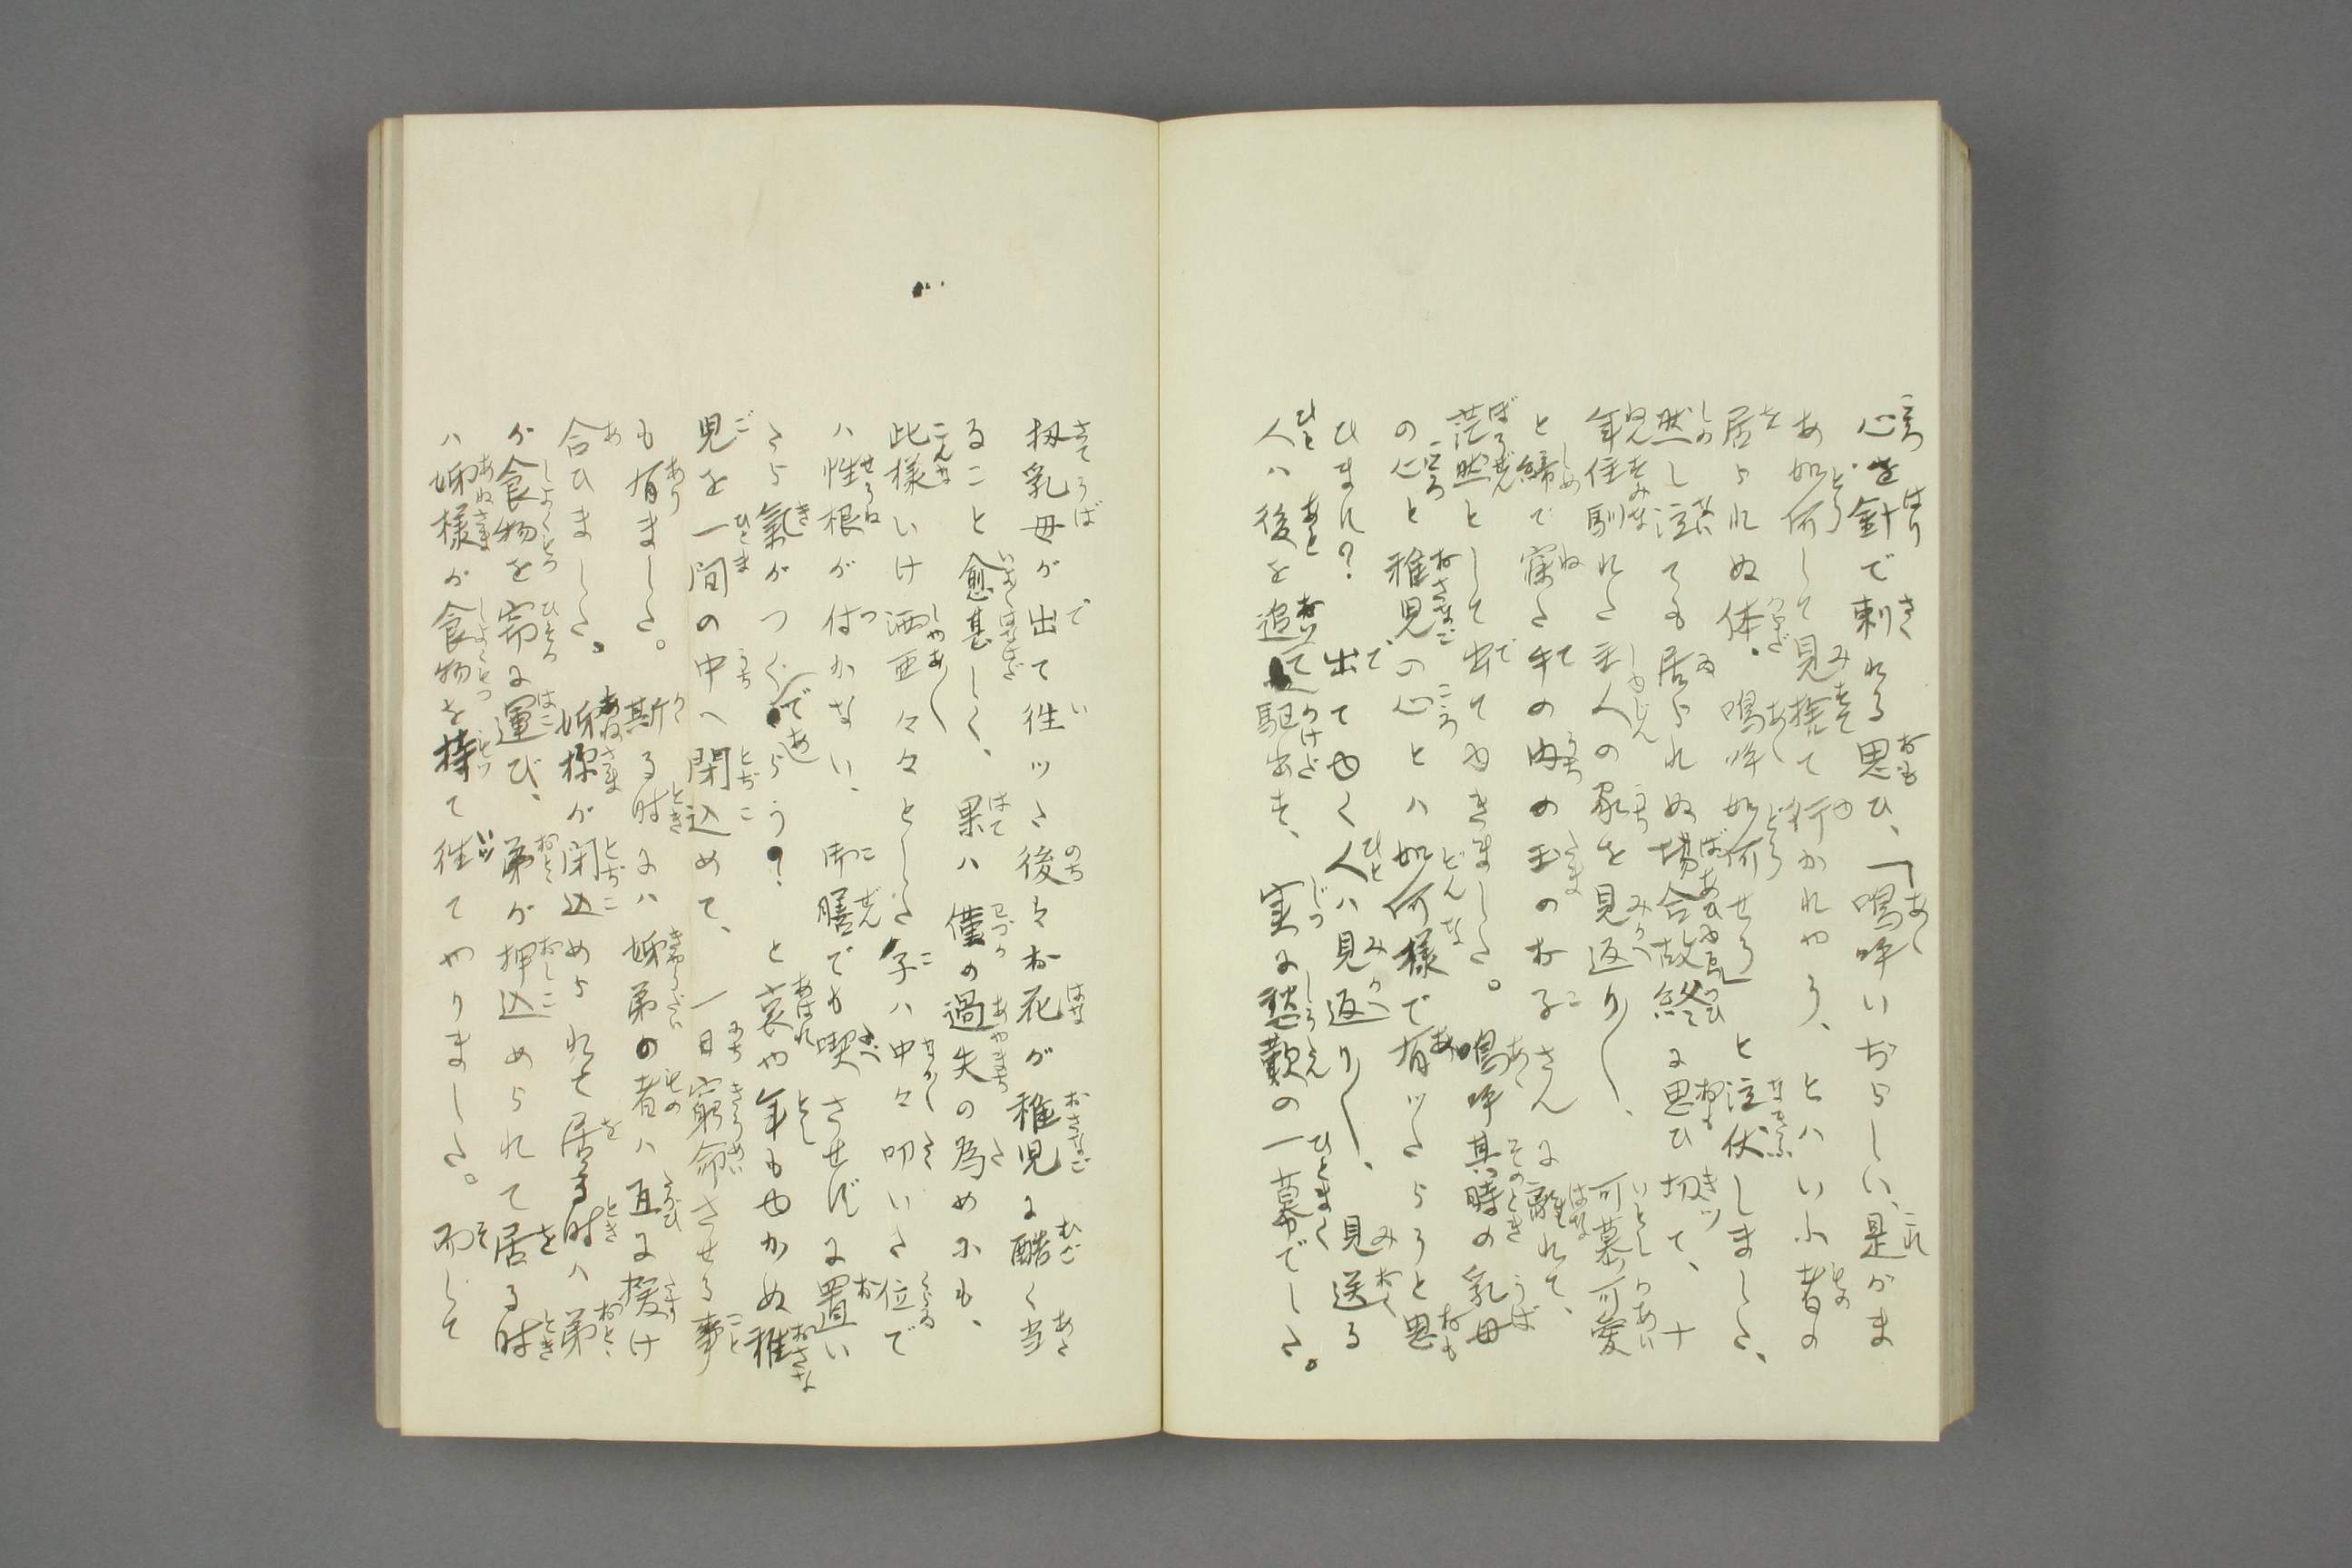 心を針で刺れる思ひ、「嗚呼いぢらしい、是がま
あ如何して見捨て行かれやう、とハいふ者の
居られぬ体。嗚呼如何せう と泣伏しました、
然し泣ても居られぬ場合故終に思ひ切て、十
年住馴れた主人の家を見返り〳〵、可慕可愛
と締て寐た手の内の玉のお子さんに離れて、
茫然として出てゆきました。嗚呼其時の乳母
の心と稚児の心とハ如何様で有ッたらうと思
ひまれ？ 出てゆく人ハ見返り〳〵、見送る
人ハ後を追て駆出す、実に愁歎の一幕でした。
扨乳母が出て往ッた後ハお花が稚児に酷く当
ること愈甚しく、果ハ僅の過失の為めにも、
此様いけ洒亜々々とした子ハ中々叩いた位で
ハ性根が付かない、御膳でも喫させずに置い
たら氣がつくであらう？と哀や年もゆかぬ稚
児を一間の中へ閉込めて、一日窮命させる事
も有ました。斯る時にハ姉弟の者ハ互に援け
合ひました。姉様が閉込められて居る時ハ弟
が食物を窃に運び、弟が押込められて居る時
ハ姉様が食物を持て往てやりました。而して